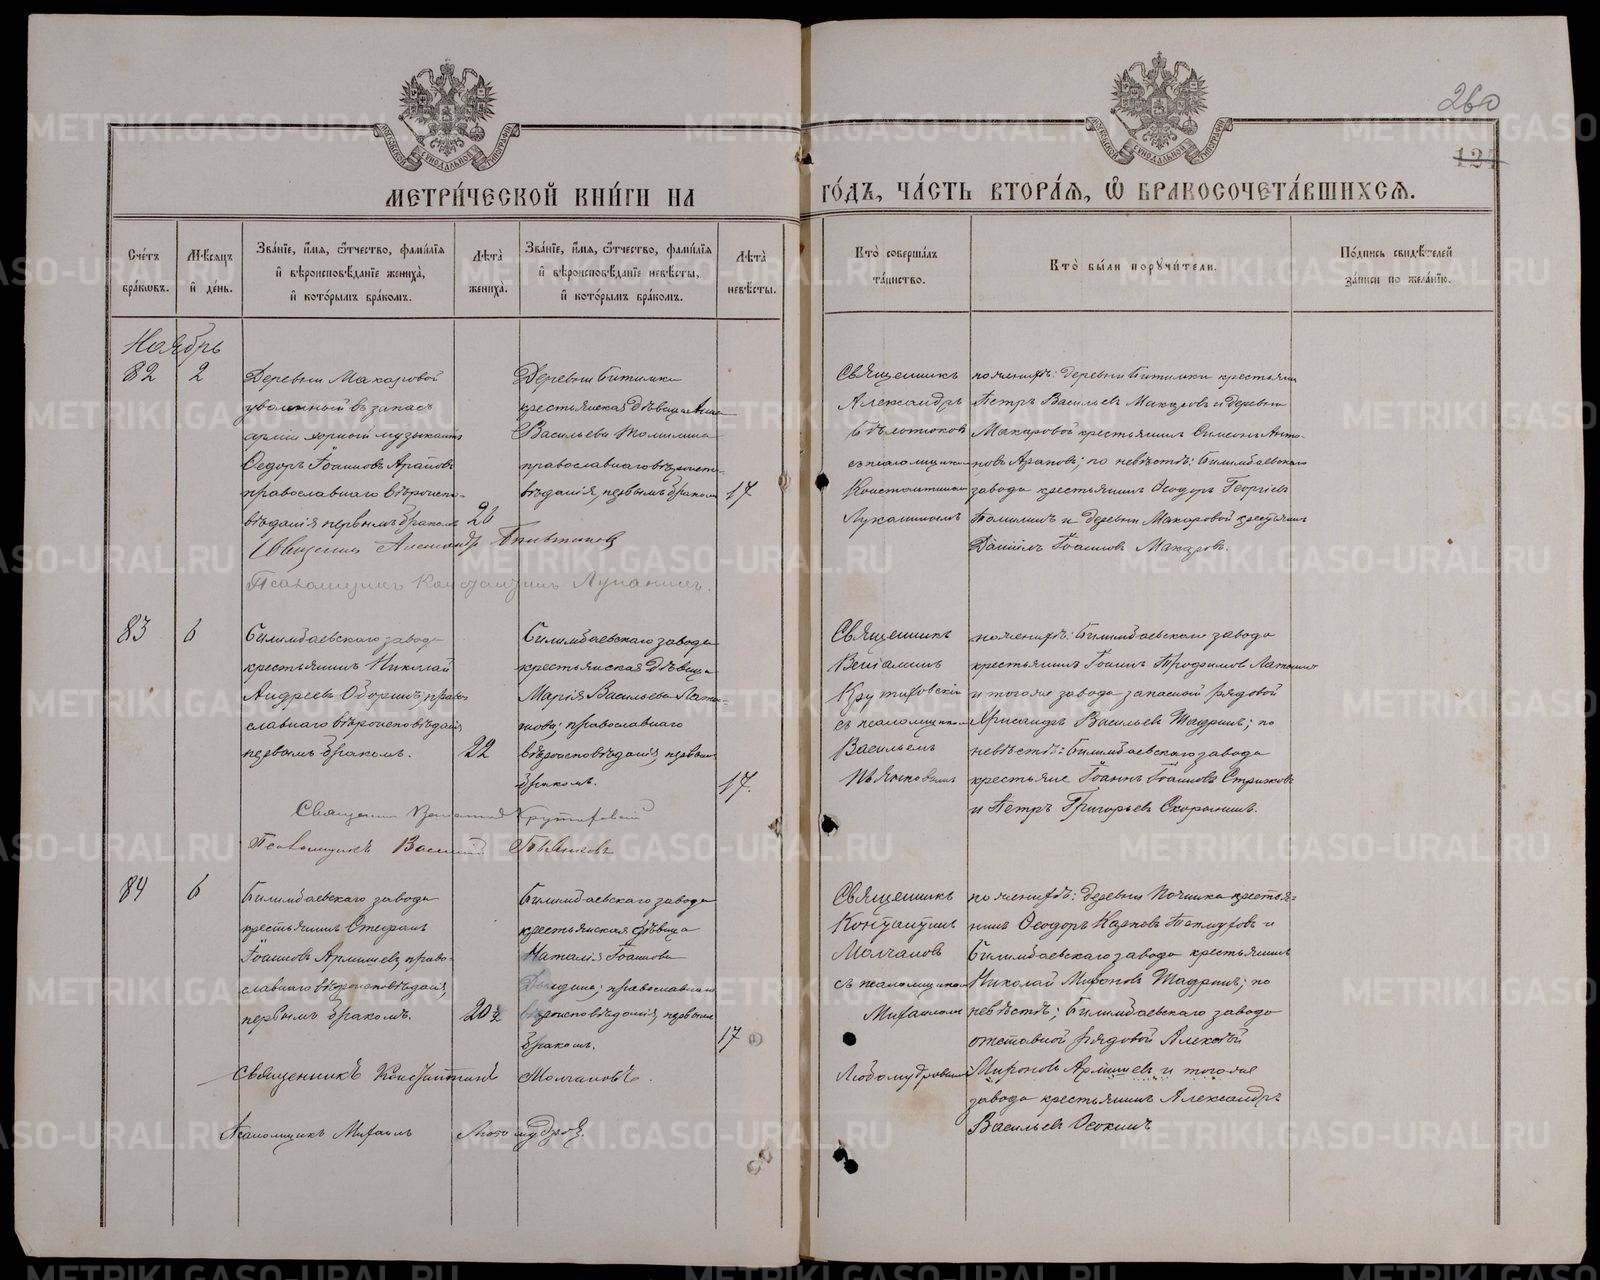 260
121
МЕТРИ́ЧЕСКОЙ КНИ́ГИ НА ГО́ДЪ, ЧА́СТЬ ВТОРА́Я, Ѽ БРАКОСОЧЕТА́ВШИХСЯ.
Сче́тъ бра́кωвъ.
Мѣ́сяцъ и҆ де́нь.
Зва́нїе, и҆́мя, ѻ҆́тчество, фами́лїя и҆ вѣроисповѣ́данїе жениха̀, и҆ кото́рымъ бра́комъ.
Лѣ́та̀ жениха̀.
Зва́нїе, и҆́мя, ѻ҆́тчество, фами́лїя и҆ вѣроисповѣ́данїе невѣ́сты, и҆ кото́рымъ бра́комъ.
Лѣ́та̀ невѣ́сты.
Кто̀ соверша́лъ та́инство.
Кто̀ бы́ли порꙋчи́тели.
По́дпись свидѣ́телей за́писи по жела́нїю.
Ноябрь
82
2
Деревни Макаровой
уволенный въ запасъ
армiи хорный музыкантъ
Ѳеодоръ Іоанновъ Араповъ
православнаго вѣроиспо-
вѣданiя первымъ бракомъ
Деревни Битимки
крестьянская дѣвица Анна
Васильева Томилина
православнаго вѣроиспо-
вѣданiя, первымъ бракомъ
17
Священникъ
Александръ
съ псаломщикомъ
Константиномъ
Луканинымъ
по женихѣ: деревни Битимки крестьянинъ
Петръ Васильевъ Макаровъ и деревни
Макаровой крестьянинъ Симеонъ Анто-
новъ Араповъ; по невѣстѣ: Билимбаевскаго
завода крестьянинъ Ѳеодоръ Георгiевъ
Томилинъ и деревни Макаровой крестьянинъ
Данiилъ Іоанновъ Макаровъ.
Священникъ Александръ
Псаломщикъ Константинъ Луканинъ.
83
6
Билимбаевскаго завода
крестьянинъ Николай
Андреевъ Оборинъ, право-
славнаго вѣроисповѣданiя,
первымъ бракомъ.
22
Билимбаевскаго завода
крестьянская дѣвица
Марiя Васильева
православнаго
вѣроисповѣданiя, первымъ
бракомъ.
17.
Священникъ
Венiаминъ
Крутиховскiй
съ псаломщикомъ
Васильемъ
Пьянковымъ
по женихѣ: Билимбаевскаго завода
крестьянинъ Іоаннъ Трофимовъ
и тогоже завода запасной рядовой
Александръ Васильевъ Шадринъ; по
невѣстѣ: Билимбаевскаго завода
крестьяне Іоаннъ Іоанновъ Стрижовъ
и Петръ Григорьевъ Скорынинъ.
Священникъ Венiаминъ Крутиховскiй
Псаломщикъ Василiй Пьянковъ
84
6
Билимбаевскаго завода
крестьянинъ Стефанъ
Іоанновъ Армишевъ, право-
славнаго вѣроисповѣданiя,
первымъ бракомъ.
20½
Билимбаевскаго завода
крестьянская дѣвица
Наталiя Іоаннова
православнаго
вѣроисповѣданiя, первымъ
бракомъ.
17
Священникъ
Константинъ
Молчановъ
съ псаломщикомъ
Михаиломъ
Любомудровымъ
по женихѣ: деревни Починка крестья-
нинъ Ѳеодоръ Карповъ и
Билимбаевскаго завода крестьянинъ
Николай Мироновъ Шадринъ; по
невѣстѣ; Билимбаевскаго завода
отставной рядовой Алексѣй
Мироновъ Армишевъ и тогоже
завода крестьянинъ Александръ
Васильевъ Осокинъ
Священникъ Константинъ Молчановъ.
Псаломщикъ Михаилъ Любомудровъ.
METRIKI.GASO-URAL.RU